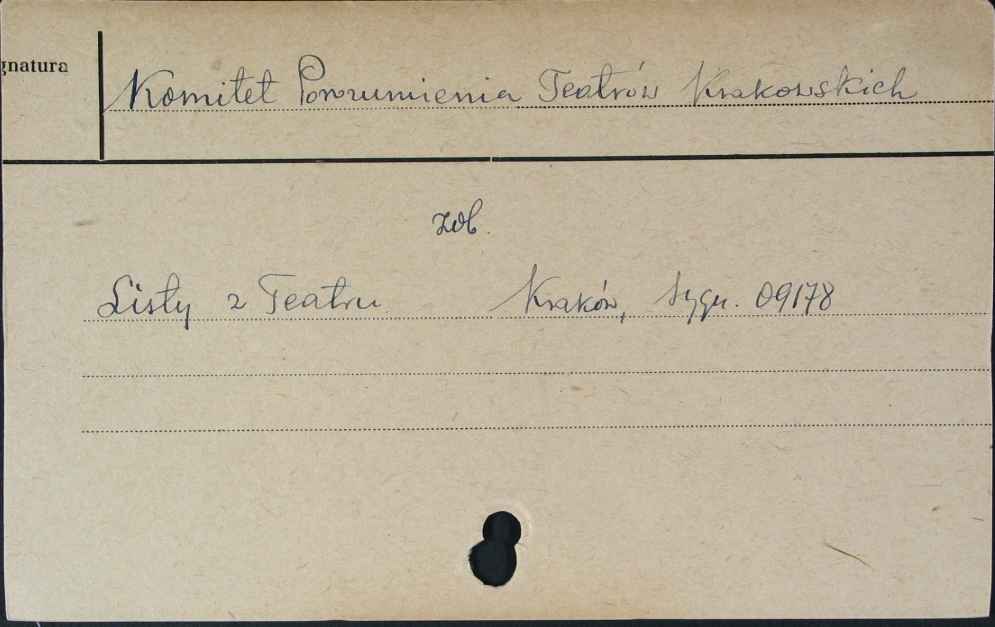 gnatura
Komitet Porozumienia Teatrów Krakowskich
zob.
Listy z Teatru Kraków, Sygn. 09178